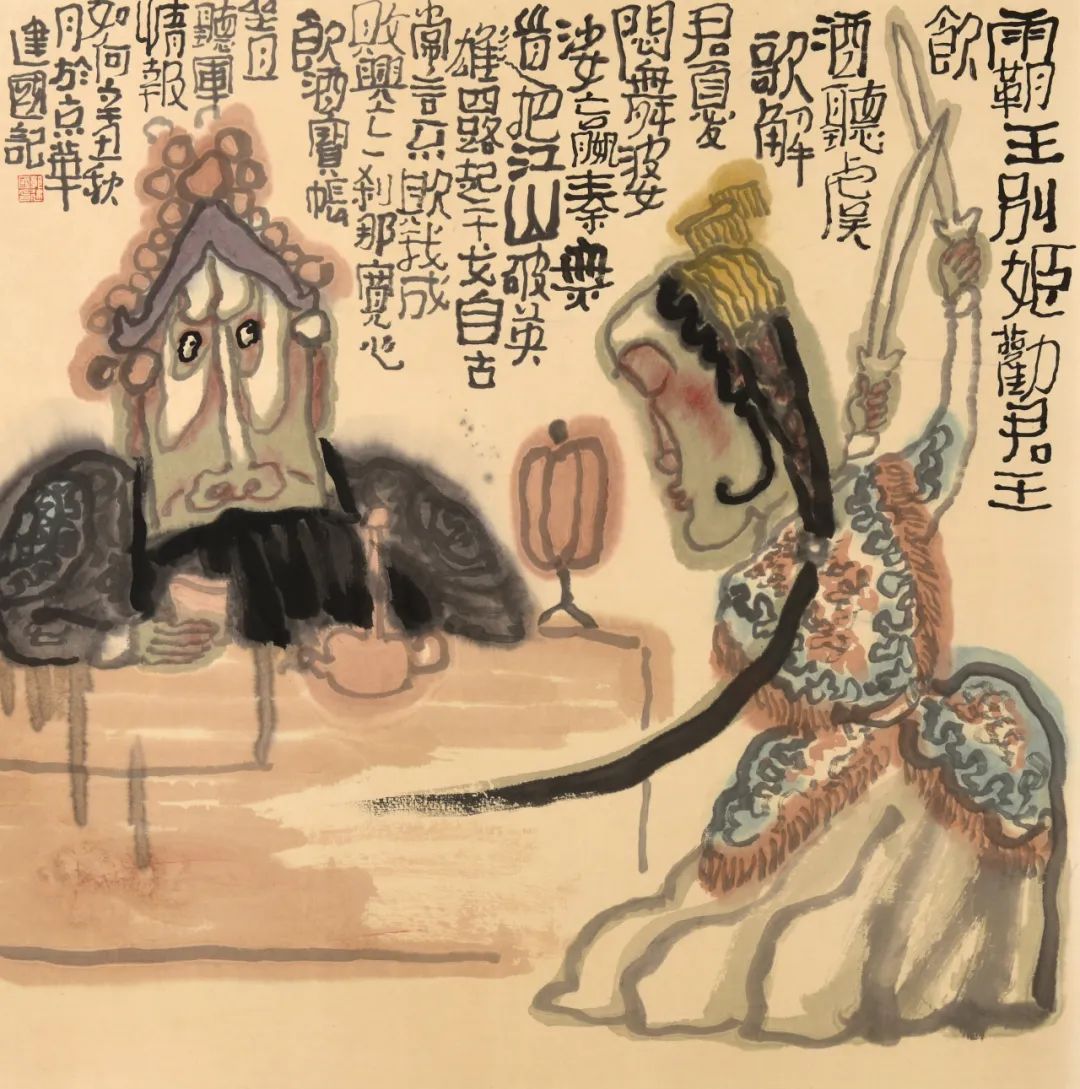 霸王别姬勸君王
飲
酒聽虞
歌解
君憂
悶舞婆
娑嬴秦無
道把江山破英
雄四路起干戈自古
常言不欺我成
敗興亡一刹那寬心
飲酒寶帳
坐且
聽軍
情報
如何辛丑秋
月於京華
建國記